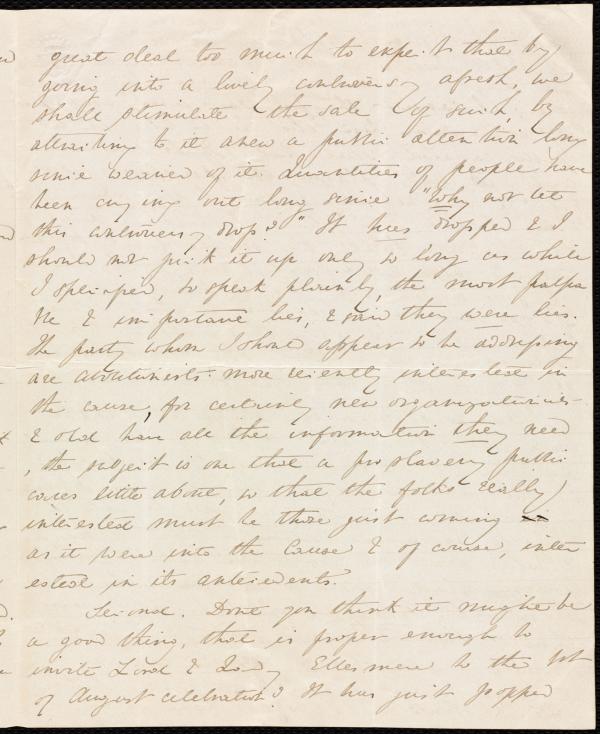 great deal too much to expect that by
going into a lively controversy afresh, we
shall stimulate the sale of such, by
attracting to it anew a public attention long
since wearied of it. Quantities of people have
been crying out long since "Why not let
this controversy drop?" It has dropped & I
should not pick it up only so long as while
I specified, to speak plainly, the most palpa
ble & important lies, & said they were lies.
The party whom I should appear to be addressing
are abolitionists more recently interested in
the cause, for certainly new organizationists
& old have all the information they need
, the subject is one that a pro slavery public
cares little about, so that the folks really
interested must be those just coming
as it were into the Cause & of course, inter
ested in its antecedents.
Second. Dont you think it might be
a good thing, that is proper enough to
invite Lord & Lady Ellesmere to the 1st
of August celebration? It has just popped